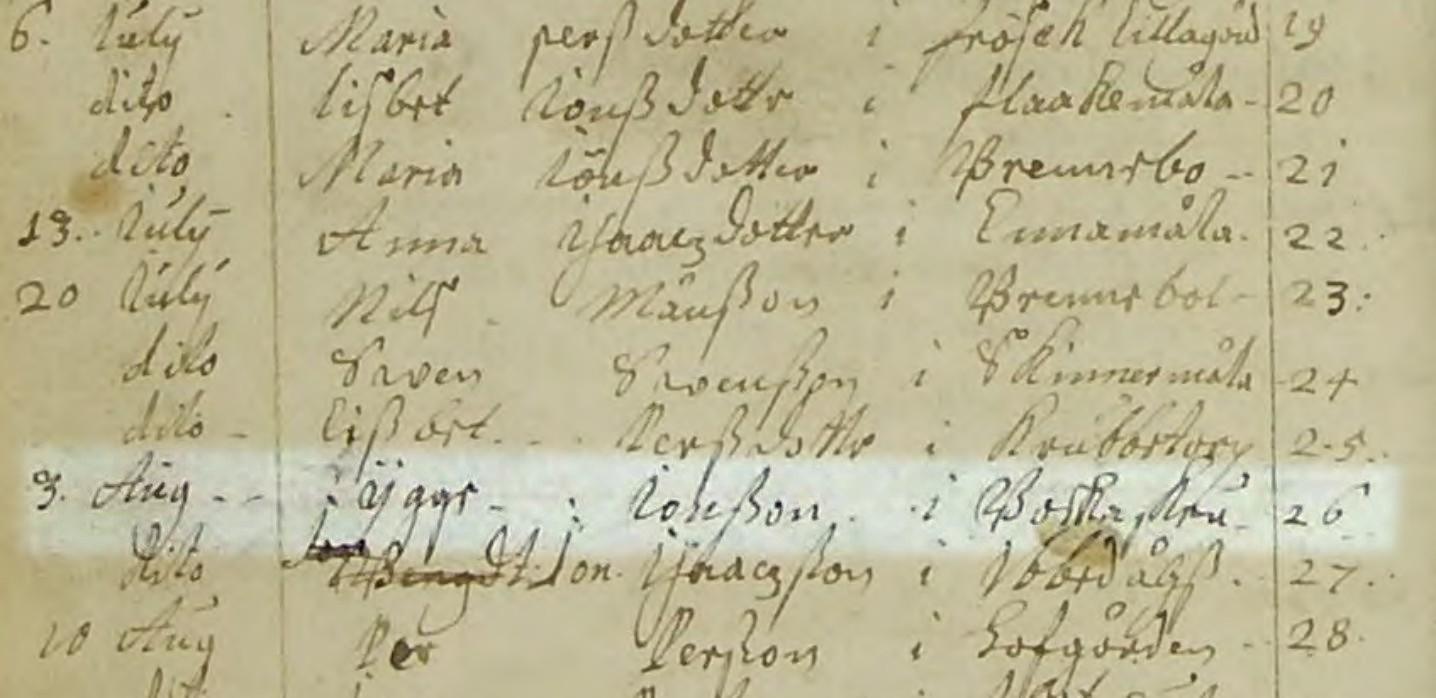 6. July Maria perß dotter i frösch lillagård 19
dito lisbet Jonß dottr i flaakemåla - 20
dito Maria Jönß dotter i Bremrbo - 21
13. July Anna Isaacz dotter i Ennamåla. 22.
20 July Nilß Månßon i Bremrbol - 23:
dito Swen Swenßon i Skinnermåla 24
dito - Lißbet - Perß dottr i Krubbetorp 25.
3. Aug - - Tyggr - Jonßon i 26
dito Jon Isaaczson i 27.
10 Aug Per Perßon i Lofgården - 28